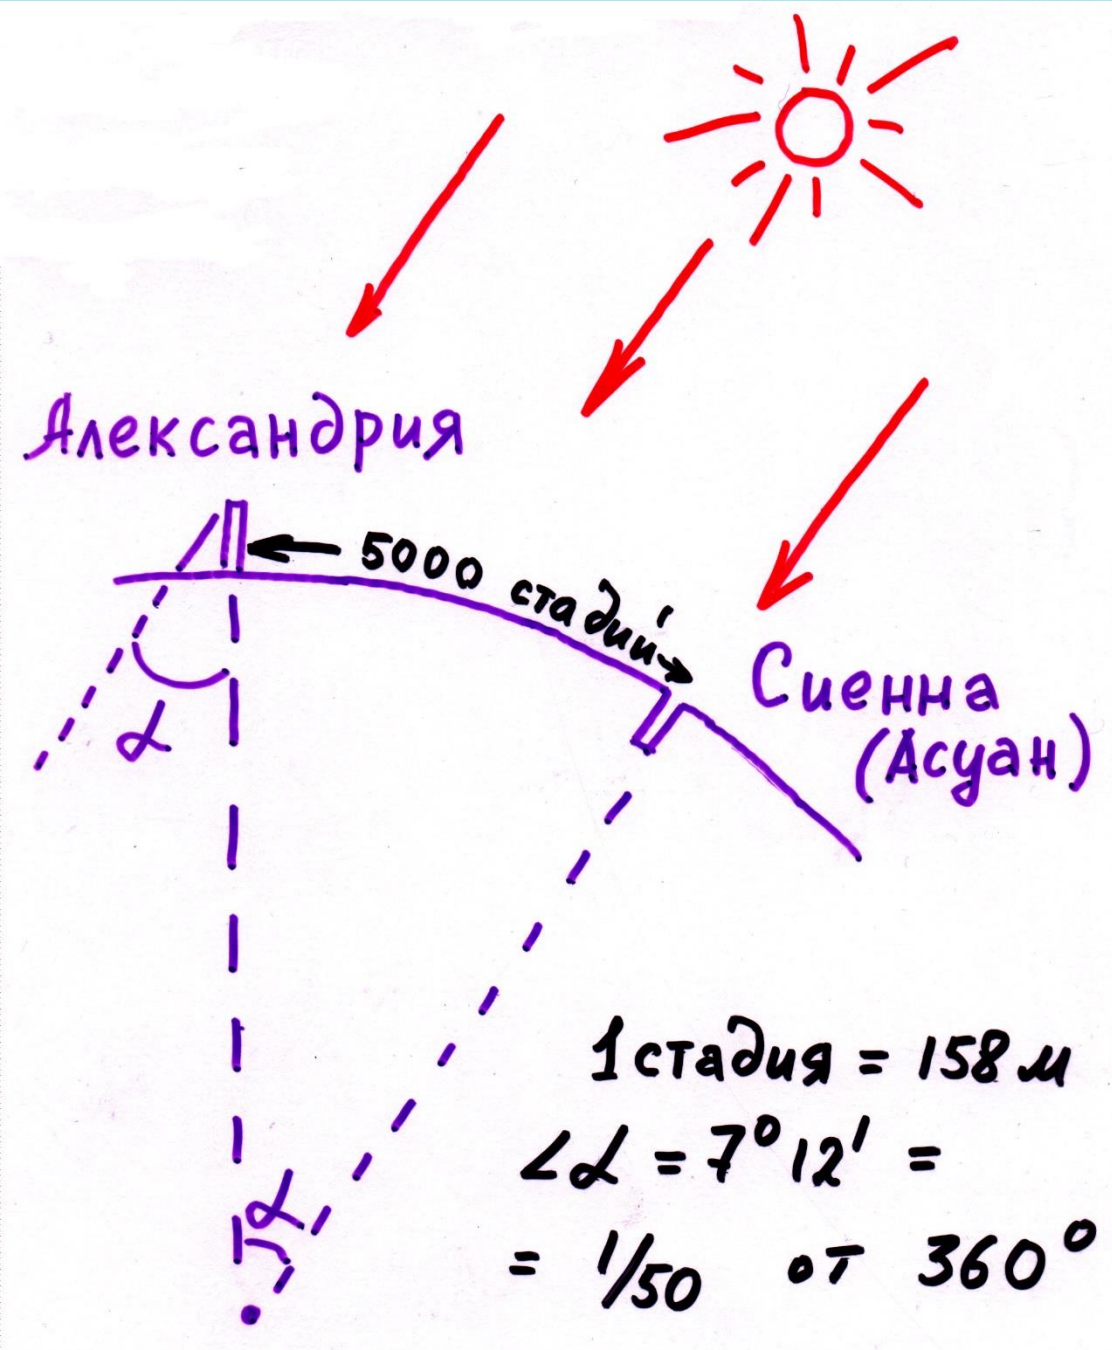 Александрия
5000 стадий
Сиенна
(Асуан)
α
α
1 стадия = 158 м
∠α = 7° 12' =
= 1/50 от 360°